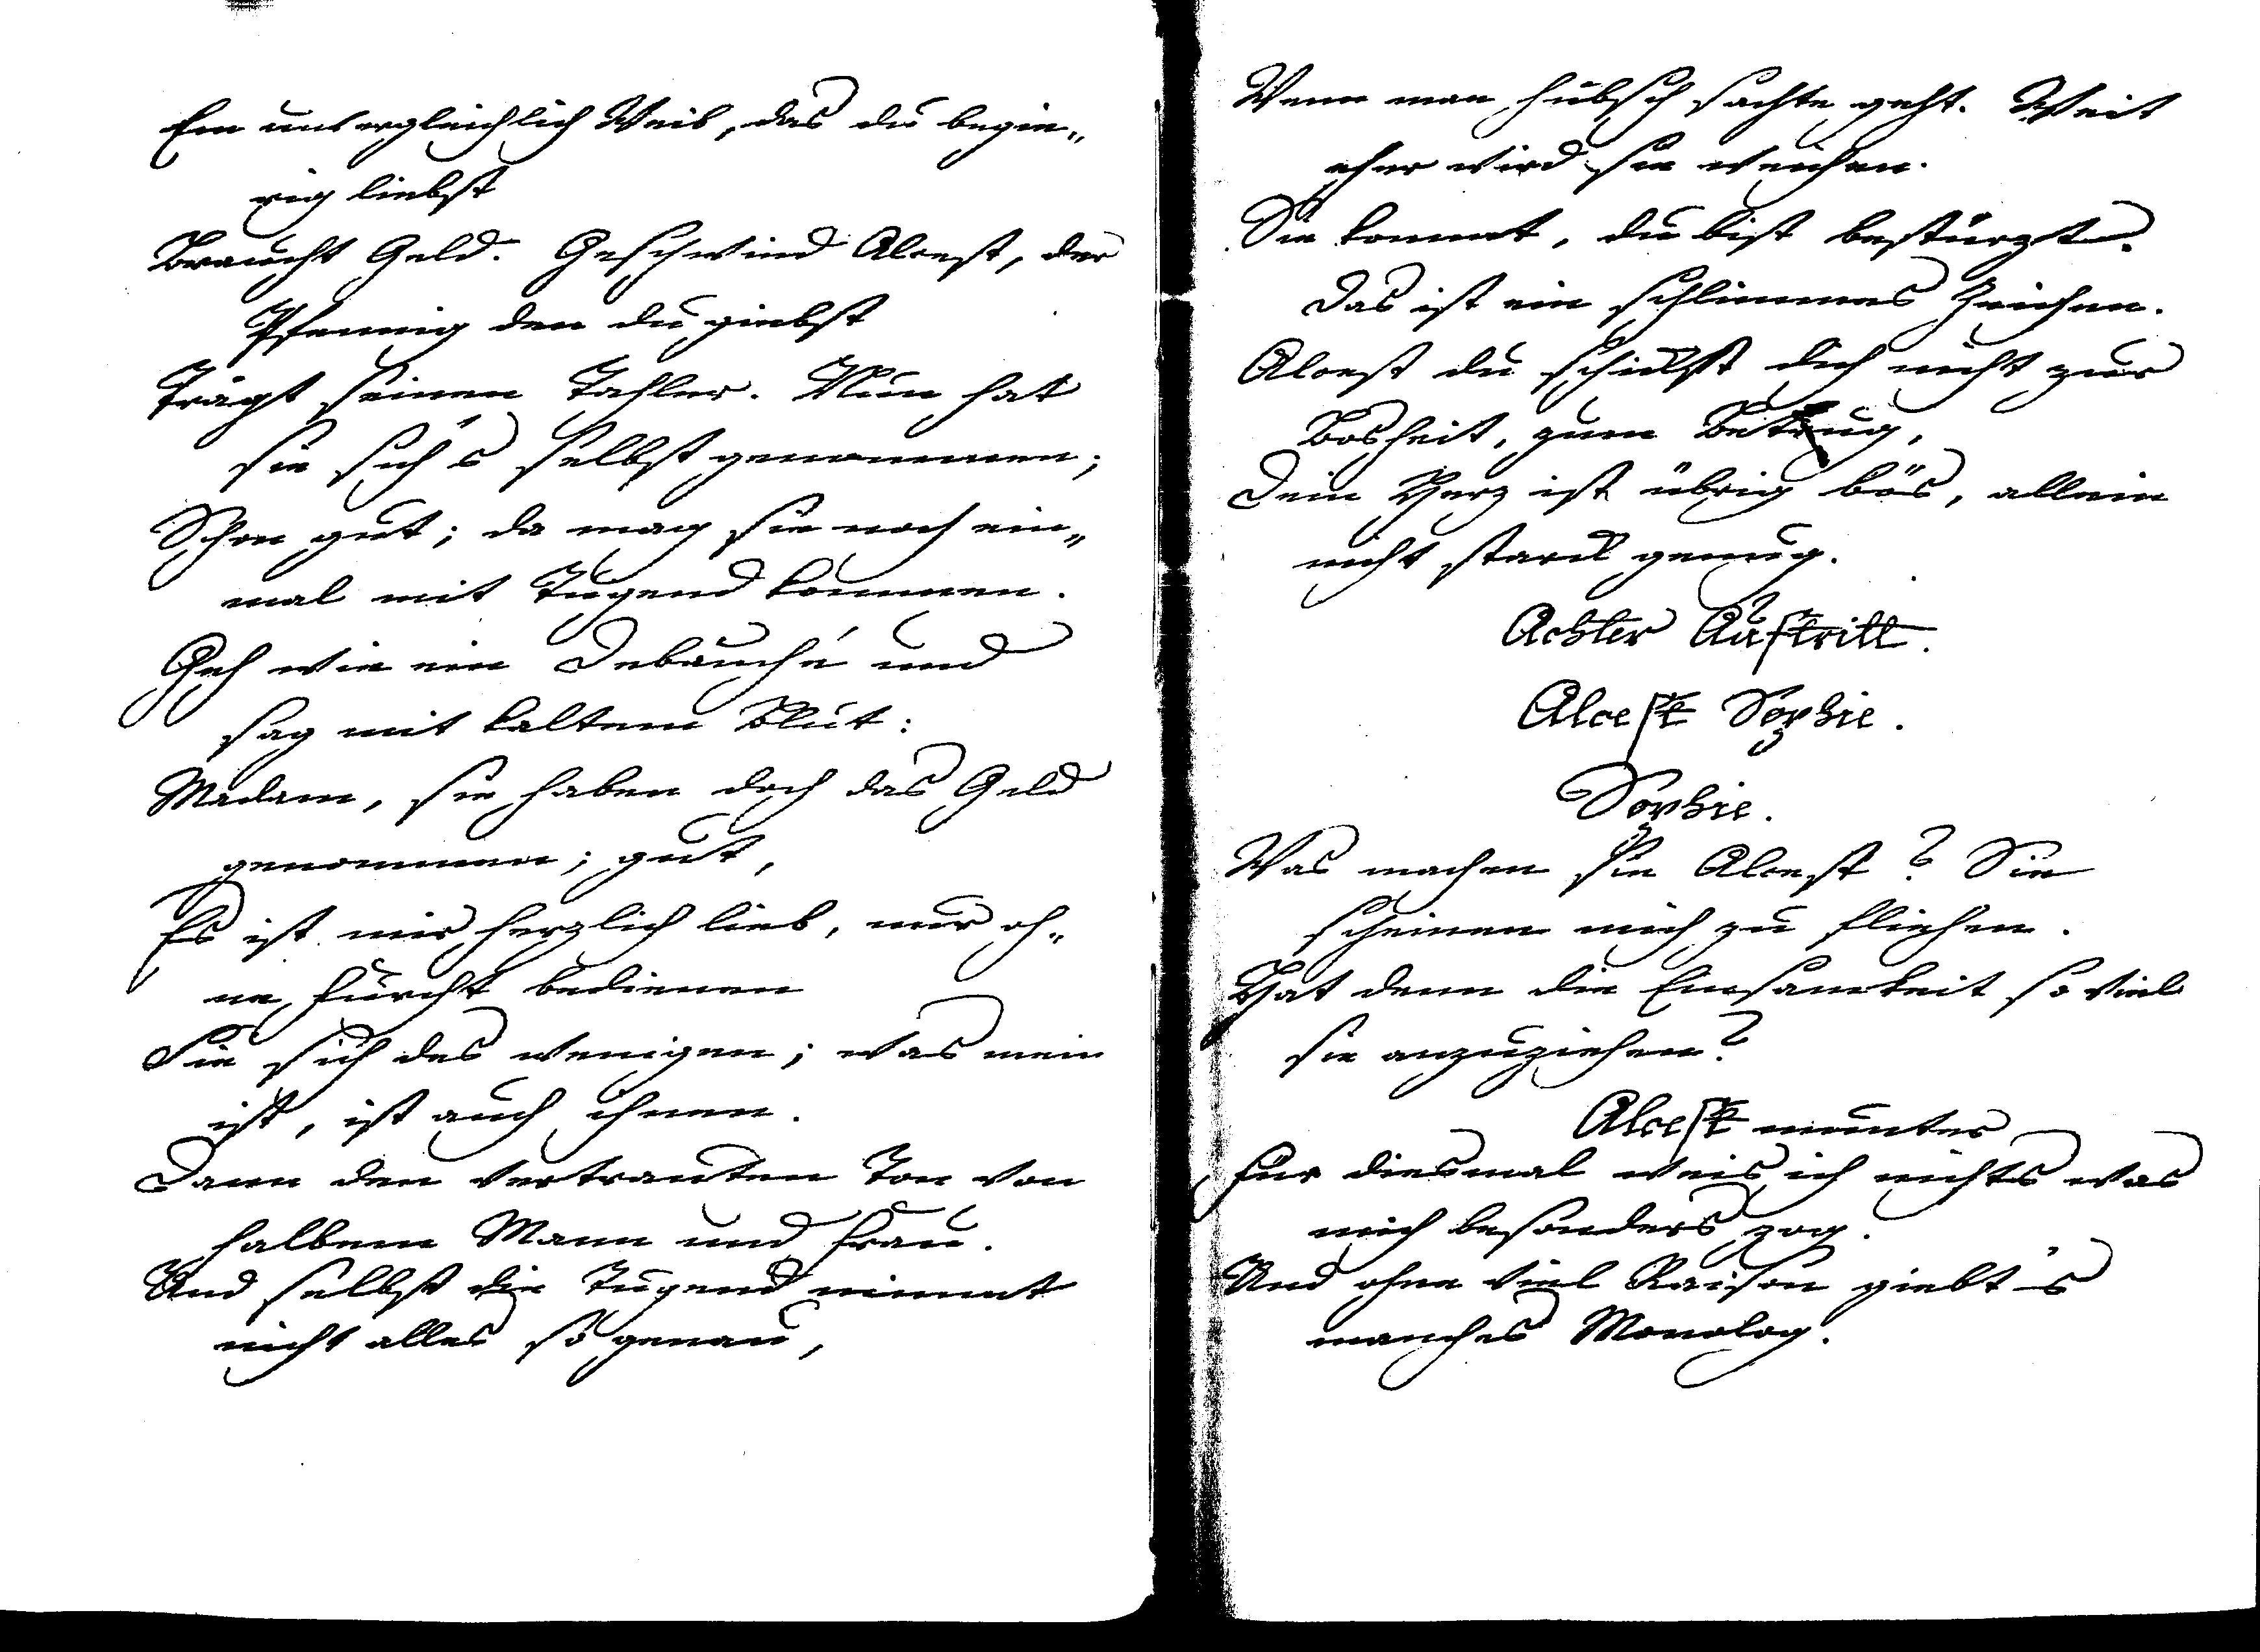 Ein unvergleichlich Weib, das du begie„
rig liebst
Braucht Geld. Geschwind Alcest, der
Pfennig den du giebst
Trägt seinen Tahler. Nun hat
sie sich's selbst genommen;
Schon gut; da mag sie noch ein„
mal mit Tugend kommen.
Geh wie ein Debauché und
sag mit kaltem Blut:
Madam, sie haben doch das Geld
genommen; gut,
Es ist mir herzlich lieb, nur oh„
ne Furcht bedienen
Sie sich des wenigen; was mein
ist, ist auch ihnen.
Dann den vertrauten Ton von
halbem Mann und Frau.
Und selbst die Tugend nimmt
nicht alles so genau,
Wenn man hübsch sachte geht. Weit
eher wird sie weichen.
Sie kommt, du bist bestürzt.
Das ist ein schlimmes Zeichen.
Alcest du schickst dich nicht zur
Bosheit, zum Betrug,
Dein Herz ist übrig bös, allein
nicht starck genug.
Achter Auftritt.
Alcest Sophie.
Sophie.
Was machen Sie Alcest? Sie
scheinen mich zu fliehen.
Hat denn die Einsamkeit so viel
sie anzuziehen?
Alcest munter
Für diesmal weis ich nichts was
mich besonders zog.
Und ohne viel Raison giebt's
manches Monolog.